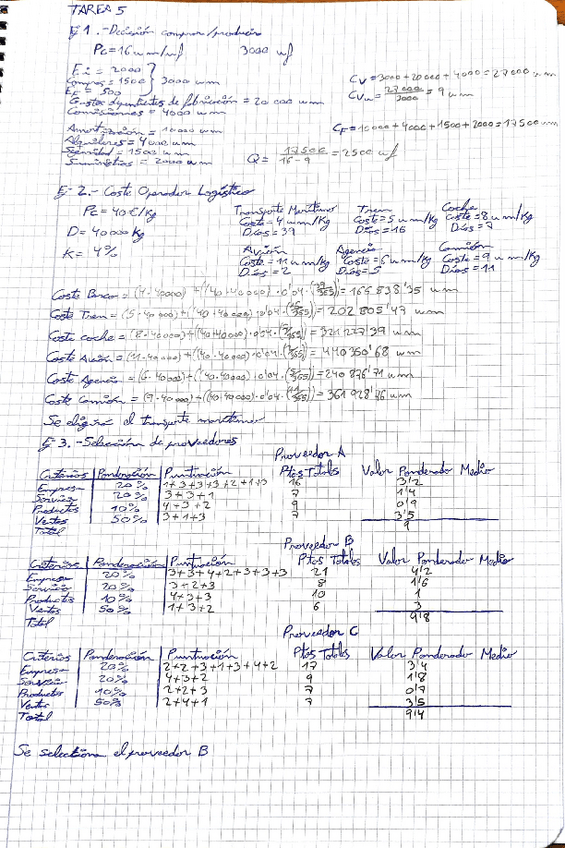 TAREA 5
Ej 1.- Decisión comprar/producir
Pc = 16 u m/uf 3000 uf
E i = 2000
Compras = 1500 } 3000 u m
E F = 500
Gastos dependientes de fabricación = 20 000 u m
Comisiones = 4000 u m
Cv = 3000 + 20000 + 4000 = 27000 u m
Cvu = 27000/3000 = 9 u m
Amortización = 10000 u m
Alquileres = 4000 u m
Seguridad = 1500 u m
Suministros = 2000 u m
CF = 10000 + 4000 + 1500 + 2000 = 17500 u m
Q = 17500/16-9 = 2500 uf
Ej 2.- Coste Operador Logístico
Pc = 40 €/Kg
D = 40000 kg
K = 4%
Transporte Marítimo
Coste = 4 u m/Kg
Días = 39
Tren
Coste = 5 u m/Kg
Días = 16
Coche
Coste = 8 u m/Kg
Días = 7
Avión
Coste = 11 u m/Kg
Días = 2
Agencia
Coste = 6 u m/Kg
Días = 5
Camión
Coste = 9 u m/Kg
Días = 11
Coste Barco = (4·40000) + ((40·40000)·0'04·(39/365)) = 166 838'35 u m
Coste Tren = (5·40000) + ((40·40000)·0'04·(16/365)) = 202 805'47 u m
Coste coche = (8·40000) + ((40·40000)·0'04·(7/365)) = 321 227'39 u m
Coste Avión = (11·40000) + ((40·40000)·0'04·(2/365)) = 440 350'68 u m
Coste Agencia = (6·40000) + ((40·40000)·0'04·(5/365)) = 240 876'71 u m
Coste Camión = (9·40000) + ((40·40000)·0'04·(11/365)) = 361 928'76 u m
Se eligirá el transporte marítimo
Ej 3.- Selección de proveedores
Proveedor A
Criterios Ponderación Puntuación Ptos Totales Valor Ponderado Medio
Empresa 20% 1+3+3+3+2+1+3 16 3'2
Servicio 20% 3+3+1 7 1'4
Productos 10% 4+3+2 9 0'9
Ventas 50% 3+1+3 7 3'5
Total 9
Proveedor B
Criterios Ponderación Puntuación Ptos Totales Valor Ponderado Medio
Empresa 20% 3+3+4+2+3+3+3 21 4'2
Servicio 20% 3+2+3 8 1'6
Productos 10% 4+3+3 10 1
Ventas 50% 1+3+2 6 3
Total 9'8
Proveedor C
Criterios Ponderación Puntuación Ptos Totales Valor Ponderado Medio
Empresa 20% 2+2+3+1+3+4+2 17 3'4
Servicio 20% 4+3+2 9 1'8
Productos 10% 2+2+3 7 0'7
Ventas 50% 2+4+1 7 3'5
Total 9'4
Se selecciona el proveedor B